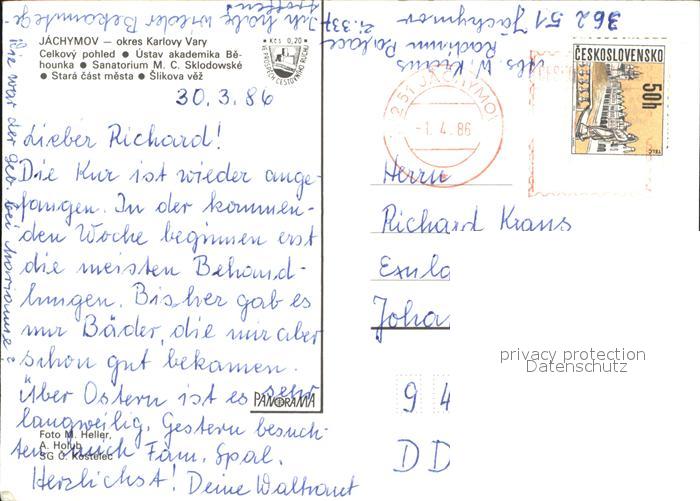 JÁCHYMOV – okres Karlovy Vary
Celkový pohled ● Ústav akademika Bě-
hounka ● Sanatorium M. C. Sklodowské
● Stará část města ● Šlikova věž
Kčs 0,20
VE PROSPĚCH CESTOVNÍHO RUCHU
30.3.86
Lieber Richard!
Die Kur ist wieder ange-
fangen. In der kommen-
den Woche beginnen erst
die meisten Behand-
lungen. Bisher gab es
nur Bäder, die mir aber
schon gut bekamen.
Über Ostern ist es sehr
langweilig. Gestern besuch-
ten auch Fam. Spal.
Herzlichst! Deine Waltraut
Wie war der geb. bei Marianne?
Ich habe wieder Bekannte
getroffen!
Abs. W. Kraus
Radium Palace
č. 337
362 51 Jáchymov
362 51 JÁCHYMOV
-1.4.86
ČESKOSLOVENSKO
50h
TELČ
Herrn
Richard Kraus
Exula
Joha
9 4
DD
PANORAMA
Foto M. Heller,
A. Holub,
SG O. Kostelec
privacy protection
Datenschutz